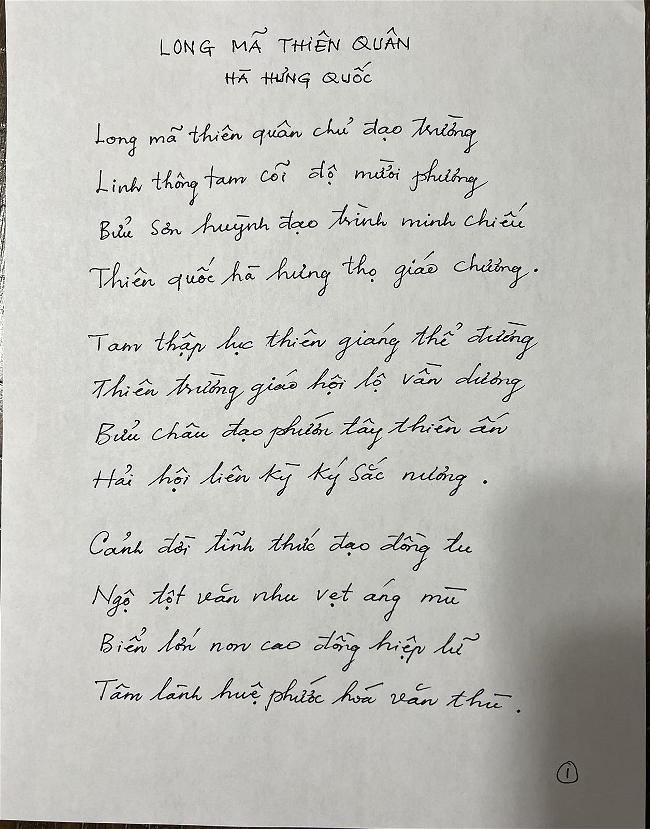 LONG MÃ THIÊN QUÂN
HÀ HƯNG QUỐC
Long mã thiên quân chủ đạo trường
Linh thông tam cõi độ mười phương
Bửu sơn huỳnh đạo trình minh chiếu
Thiên quốc hà hưng thọ giáo chương.
Tam thập lục thiên giáng thể đường
Thiên trường giáo hội lộ vần dương
Bửu châu đạo phướn tây thiên ấn
Hải hội liên kỳ ký sắc nương.
Cảnh đời tỉnh thức đạo đồng tu
Ngộ tột văn như vẹt áng mù
Biển lớn non cao đồng hiệp lữ
Tâm lành huệ phước hoá văn thù.
1